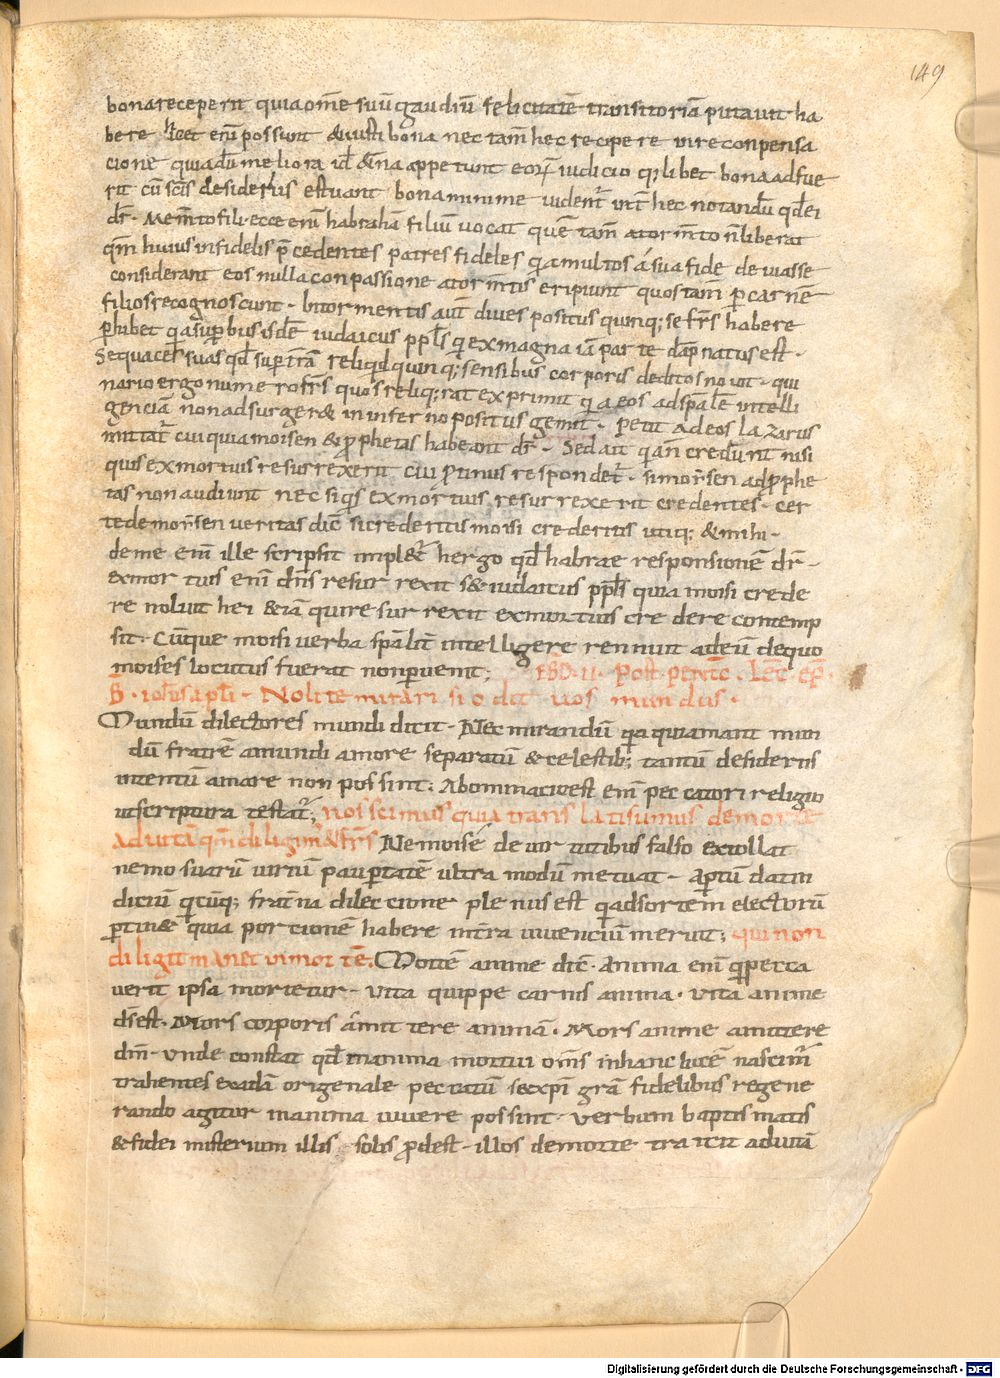 149
bona receperit quia om̄e suū gaudiū felicitatē transitoriā putavit ha
bere licet enī possunt & iusti bona nec tam̄ hec recipere in reconpensa
cione quia dū meliora id ē & erna appetunt eorū iudicio q; libet bona adfue
rit cū sc̄is desideriis estuant bona minime videnr̄ int̄ hec notandū qd̄ ei
dr̄ · Mem̄to fili · ecce enī habrahā filiū vocat quē tam̄ a torm̄to n̄ liberat
qm̄ huius infidelis p̄cedentes patres fideles qa multos á sua fide deviasse
considerant eos nulla conpassione a torm̄tis eripiunt quos tam̄ p carnē
filios recognoscunt · In tormentis aut̄ dives positus quinq; se fr̄s habere
phibet qa supbus isdē iudaicus ppl̄s q ex magna iā parte dāpnatus est ·
Sequaces suas qd̄ sup t̄rā reliqd quinq; sensibus corporis deditos novit · qui
nario ergo numero fr̄s quos reliq;rat exprimit qa eos ad spālē intelli
genciā non adsurger& in inferno positus gemit · Petit ad eos lazarus
mittat̄ cui quia moisen & p̄phetas habeant dr̄ · Sed ait qa n̄ credunt nisi
quis ex mortuis resurrexerit cui p̄tinus respondet̄ · si moisen ad p̄phe
tas non audiunt nec si q̄s ex mortuis resurrexerit credentes · cer
te de moisen veritas dic̄ si crederitis moisi crederitis utiq; & mihi ·
de me enī ille scripsit implet̄ hergo qd̄ habrae responsionē dr̄ ·
ex mortuis enī dn̄s resurrexit s& iudaicus ppl̄s quia moisi crede
re noluit hei & iā qui resurrexit ex mortuis credere contemp
sit · Cūque moisi verba spālit̄ intelligere rennuit ad eū de quo
moises locutus fuerat non pvenit; EBD · II · Post pentec̄ · Lec̄t · ep̄
B · iohis apl̄i · Nolite mirari si odit vos mundus ·
Mundū dilectores mundi dicit · Nec mirandū qa quia mant mun
dū fratrē a mundi amore separatū & celestib; tantū desideriis
intentū amare non possint; Abominacio est enī peccatori religio
ut scriptura testat̄; nos scimus quia translati sumus de morte
ad vitā qm̄ diligim̄ & fr̄s Nemo isē de virtutibus falso extollat
nemo suarū viriū paupertatē ultra modū metuat · aptū dat in
diciū qcūq; frat̄na dileccione plenus est q ad sortem electorū
ptin& quia porcionē habere int̄ra vivenciū meruit; qui non
diligit manet in mortē. Mortē anime dic̄ · Anima enī q peeca
verit ipsa morietur · vita quippe carnis anima · vita anime
ds̄ est · Mors corporis amittere animā · Mors anime amittere
dm̄ · unde constat qd̄ in anima mortui om̄s in hanc lucē nascim̄
trahentes ex adā origenale peccatū sec xp̄i grā fidelibus regene
rando agitur in anima vivere possint · verbum baptismatis
& fidei misterium illis solis p̄dest · illos de morte traicit ad vitā
Digitalisierung gefördert durch die Deutsche Forschungsgemeinschaft - DFG